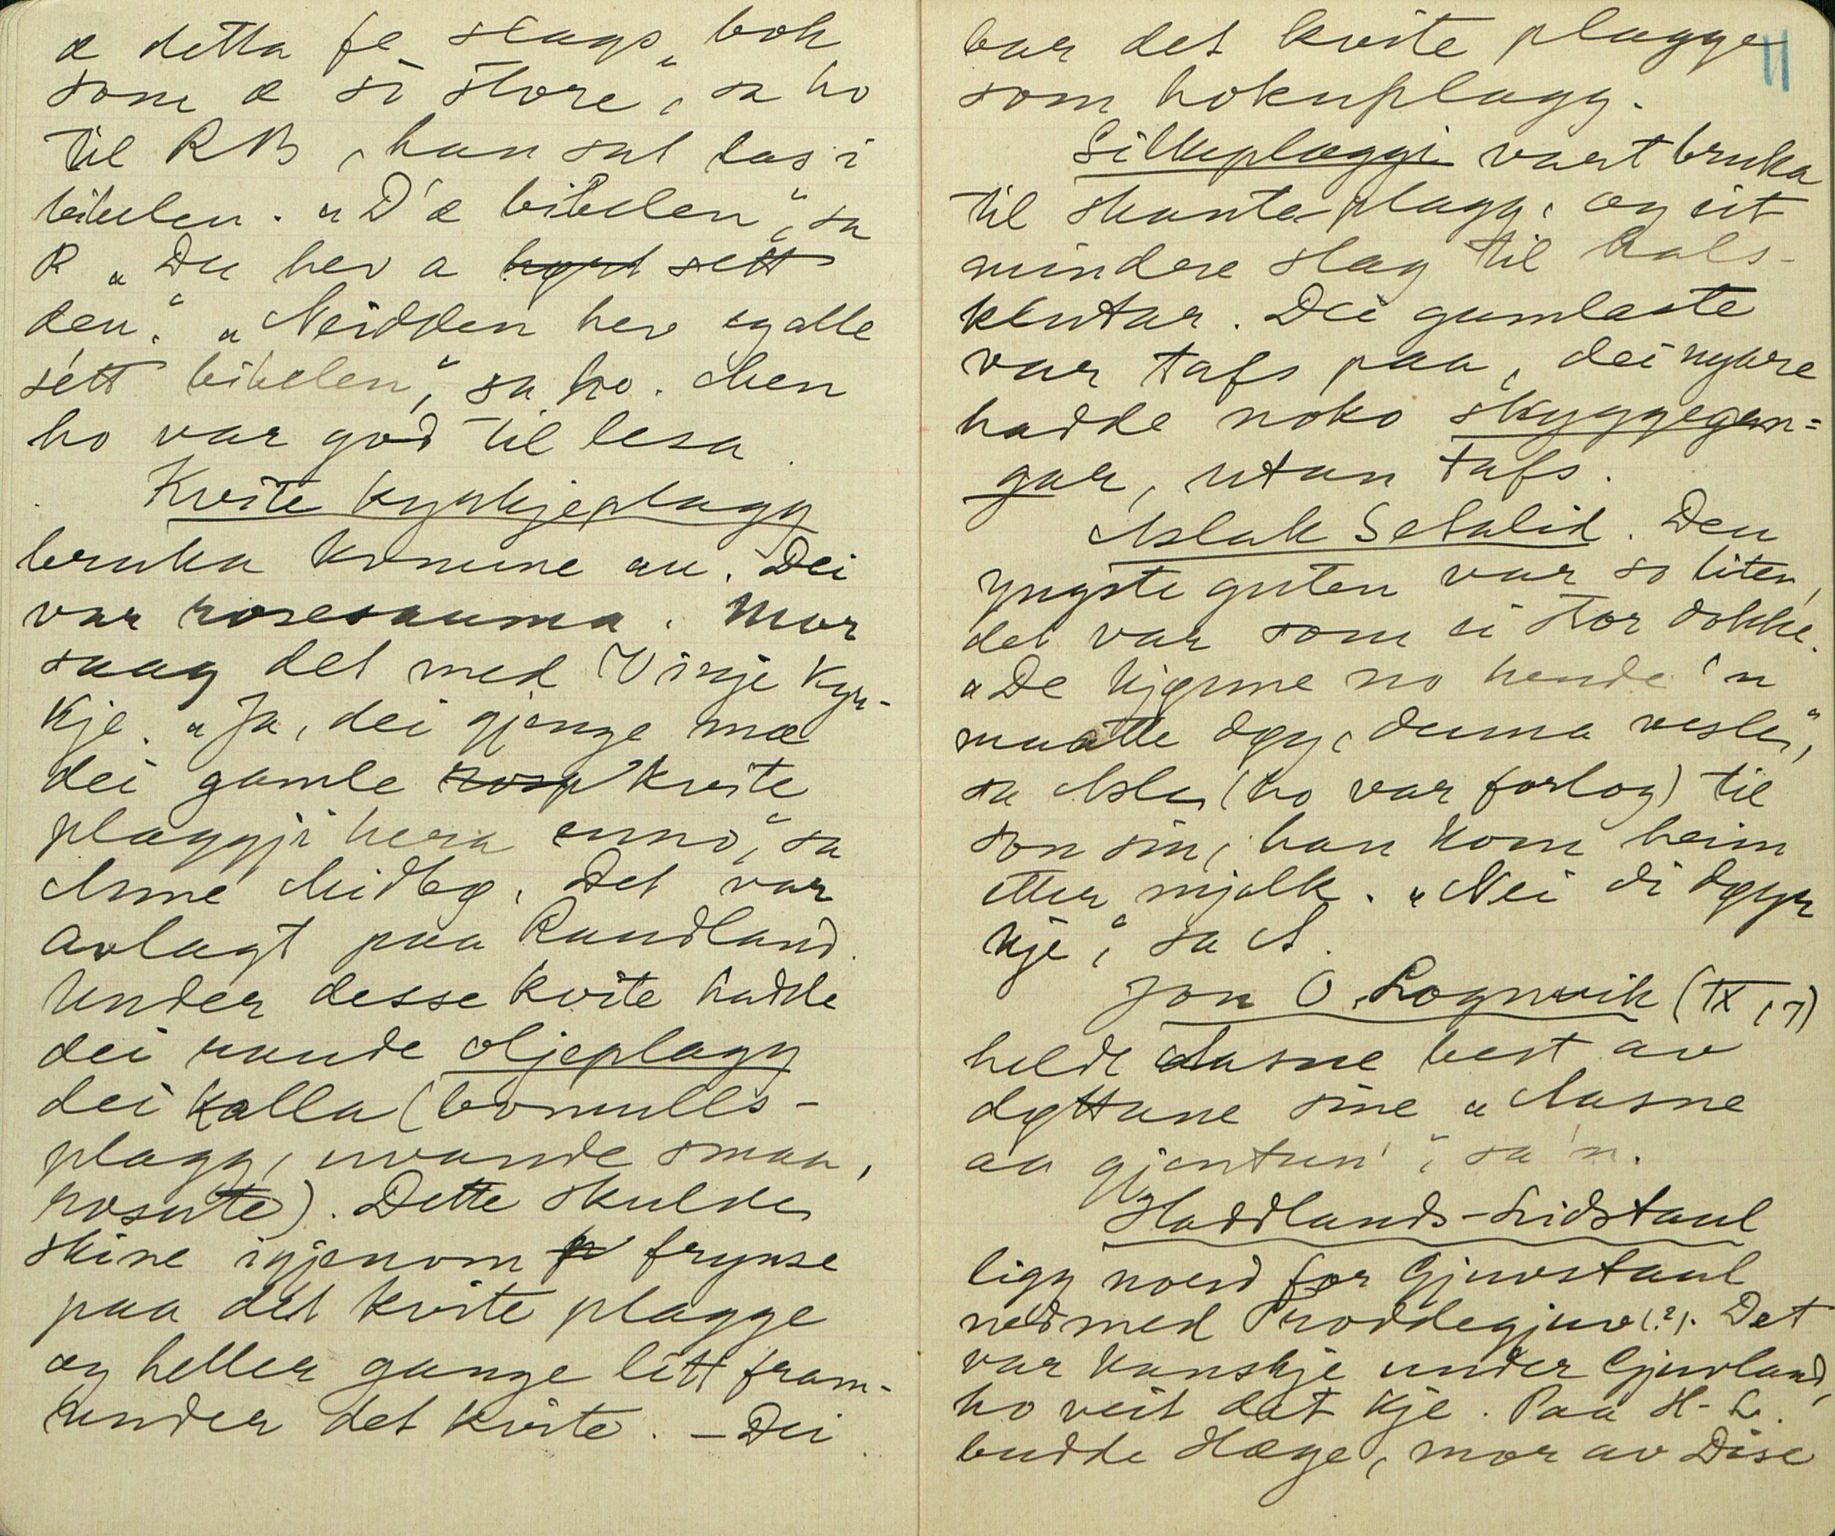 æ detta fe slags bok
som æ sò store", sa ho
til RB, han sat las i
bibelen. "D'æ bibelen", sa
R "Du hev a høyrt sett
den." "Neidden hev eg alle
sétt bibelen", sa ho. Men
ho var god til lesa.
Kvite kyrkjeplagg
bruka konune au. Dei
var rosesauma. Mor
saag det med Vinje kyr-
kje. "Ja, dei gjenge mæ
dei gamle rosa kvite
plaggji hera enno", sa
Anne Midbø. Det var
avlagt paa Raudland.
Under desse kvite hadde
dei raude oljeplagg
dei kalla (bomulls-
plagg, uvande smaa,
rosute). Dette skulde
skine igjenom fr frynse
paa det kvite plagge
og heller gange litt fram-
under det kvite. - Dei
11
bar det kvite plagge
som hokuplagg.
Silkeplaggji vart bruka
til skauta-plagg, og eit
mindre slag til hals-
klutar. Dei gamlaste
var tafs paa, dei nyare
hadde noko skyggegan=
gar, utan tafs.
Aslak Setalid. Den
yngste guten var so liten,
det var som ei stor dokke.
"De kjøme no hende 'n
maatte døy, denna vesle",
sa Asla (ho var forlog) til
son sin, han kom heim
etter mjølk. "Nei di døyr
kje", sa A.
Jon O. Lognvik (IX, 7)
heldt Aasne best av
døttane sine "Aasne
aa gjentun'", sa 'n.
Haddlands-Lidstaul
ligg nord for Gjuvstaul
ned med Proddegjuv(?). Det
var kanskje under Gjuvland,
ho veit dat kje. Paa H-L.
budde Hæge, mor av Dise